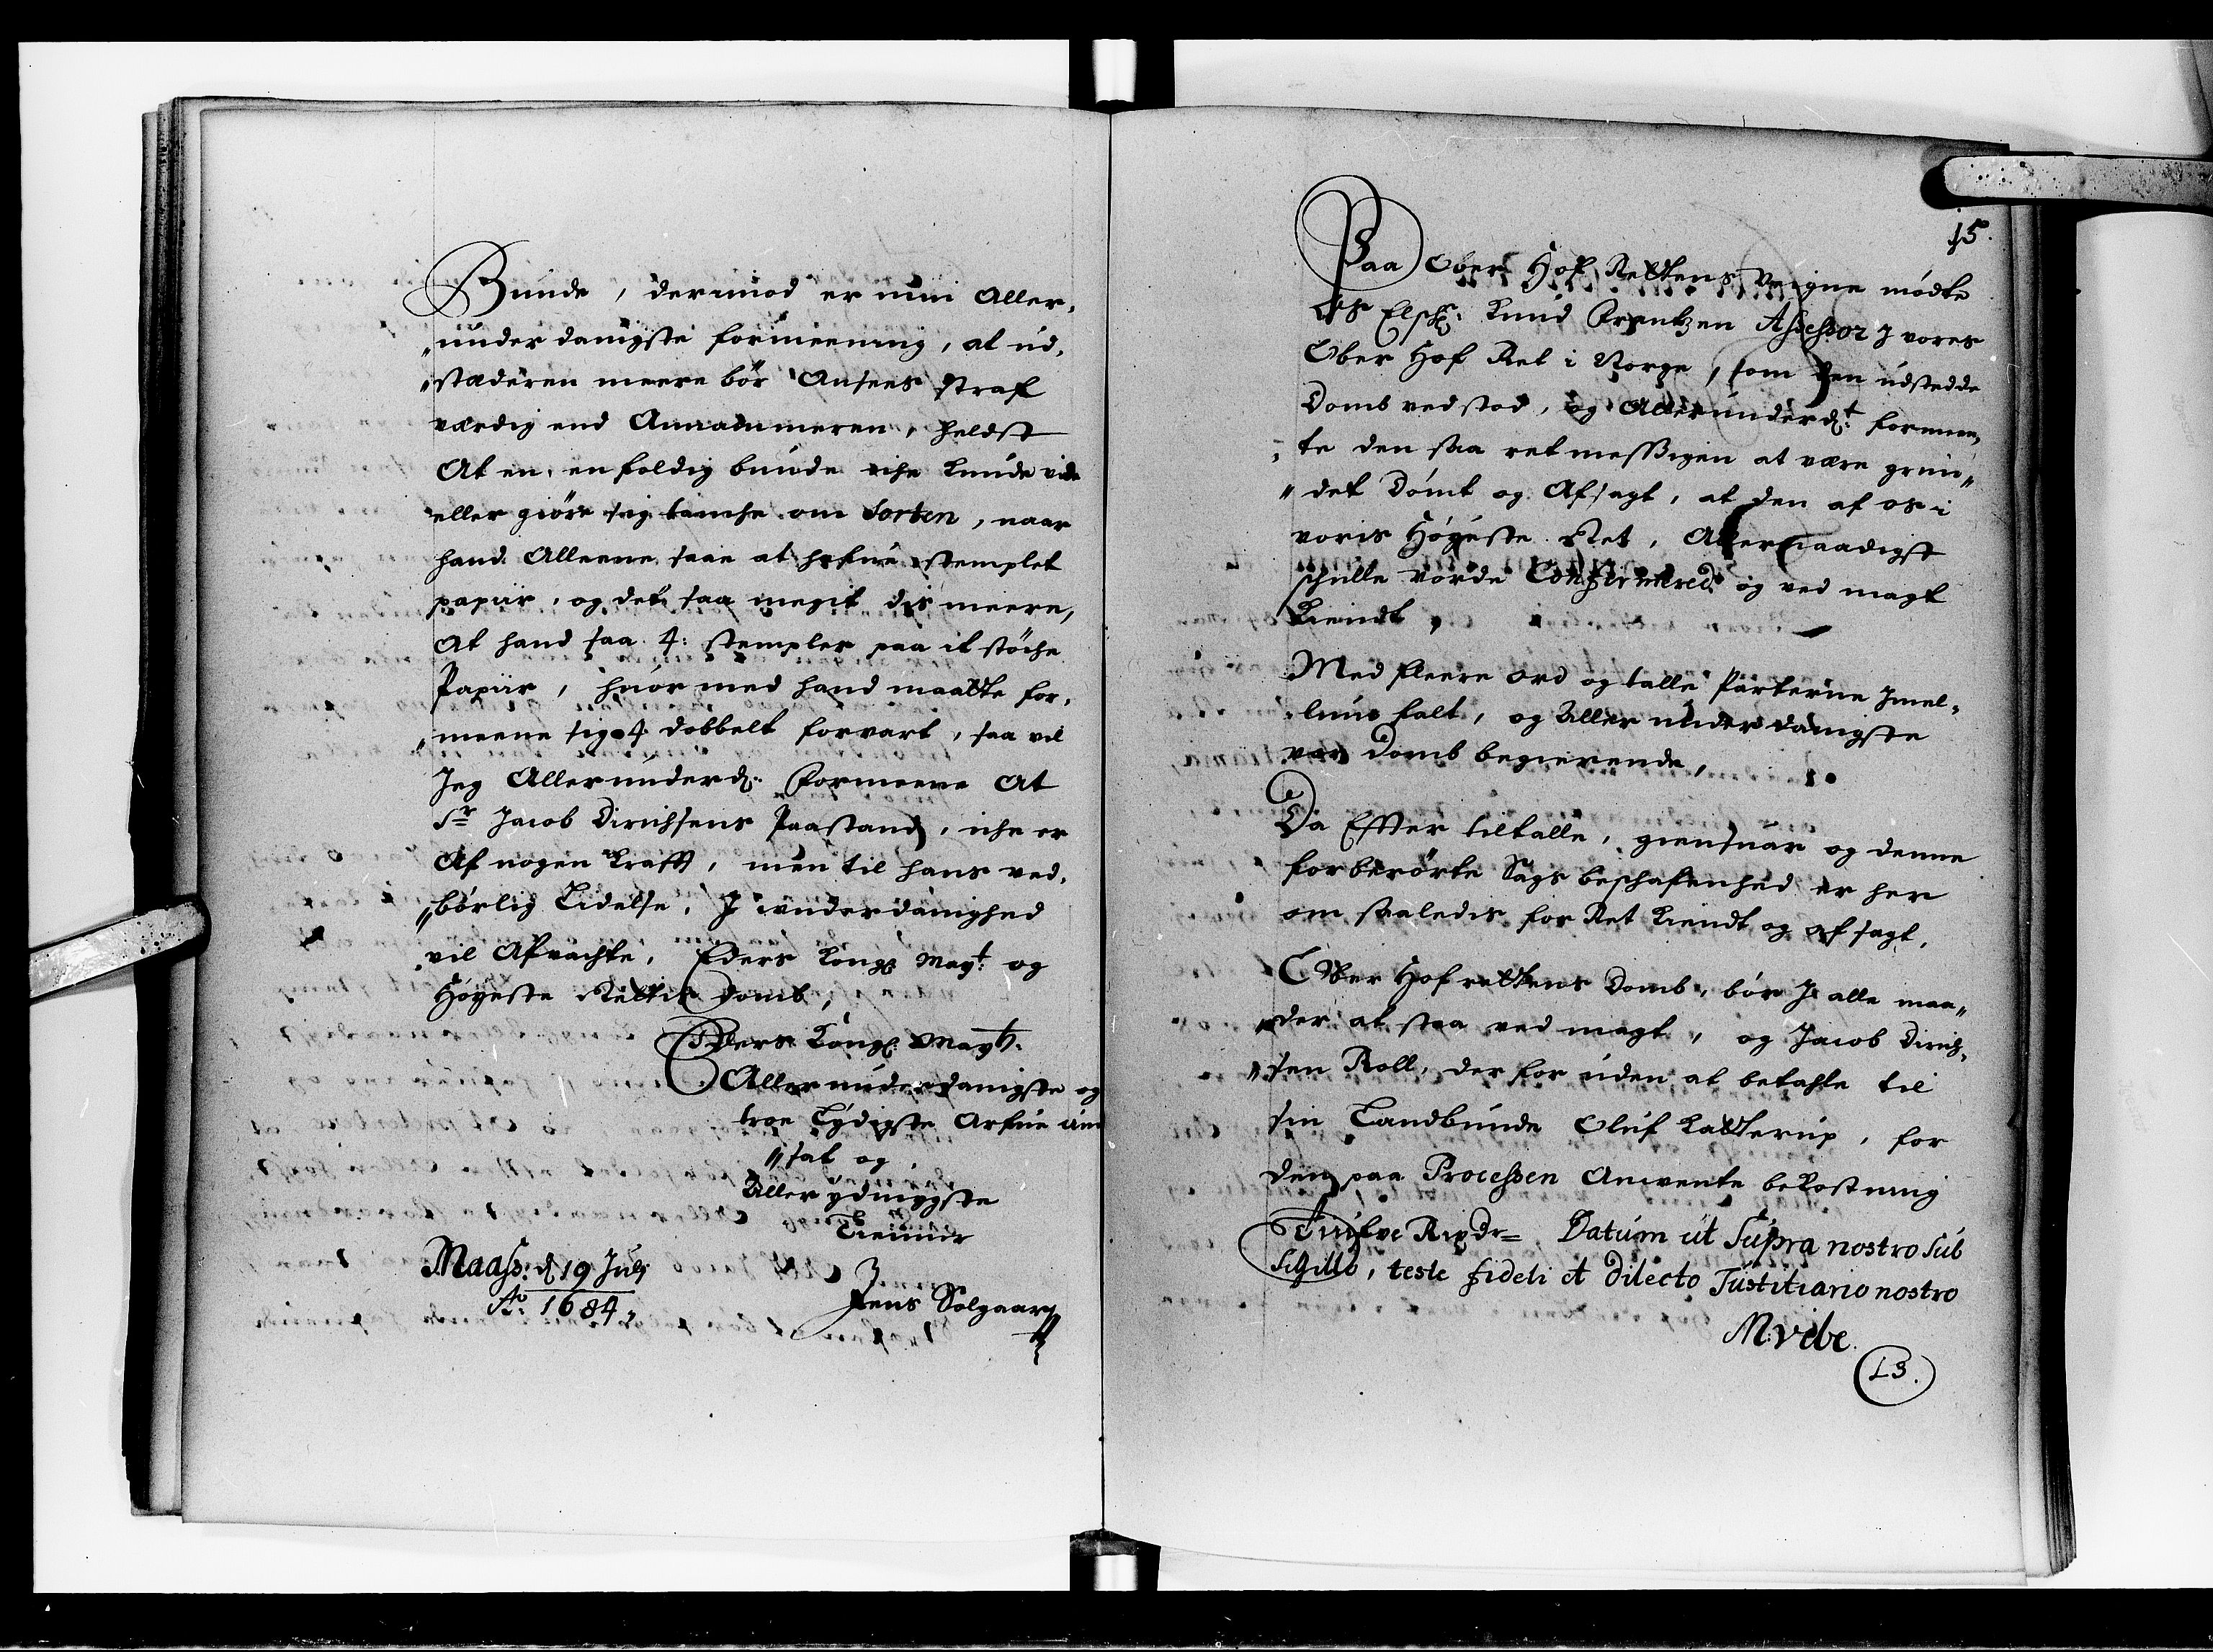 Bunde, derimod er min Aller,
„under danigste formeening, at ud,
„stæderen meere bør Ansees straf
værdig end Annammeren, heldst
At en, en foldig bunde iche kunde vide
eller giöre sig tanche om Sorten, naar
hand Alleene saae at hafue stemplet
papiir, og det saa megit dis meere,
At hand saa 4: stempler paa it støche
Papiir, huor med hand maatte for,
„meene sig 4 dobbelt forvart, saa vil
Jeg Allerunderd: formeene At
Sr Jacob Dirichsens Paastand, iche er
Af nogen Krafft, men til hans ved,
„børlig Lidelse, J underdanighed
vil Afvachte, Eders Kongl Mayt: og
Høyeste Rettis Domb,
Eders Kongl Mayts.
Allerunderdanigste og
troe Lydigste Arfue und
„sat og
Aller ydmygste
Tienner
Maass: d 19 Julj
Ao: 1684,
Jens Solgaard
15.
Paa Ober Hof Rettens Veigne mødte
Os Elschl: Knud Arentzen Assessor J vores
Ober Hof Ret i Norge, som den udstedde
Domb vedstod, og Allerunderdt: formeen,
„te den saa retmessigen at være grun„
„det Dömt og Afsagt, at den af os i
voris Høyeste Ret, Allernaadigst
schulle vorde Confirmered og ved magt
Kiendt,
Med fleere Ord og talle Parterne Jmel„
lum falt, og Aller under danigste
vor Domb begierende,
Da Effter tiltalle, giensuar og denne
forberörte Sags beschafenhed er her
om saaledis for Ret kiendt og afsagt,
Ober Hofrettens Domb, bör J alle maa„
„der at staa ved magt, og Jacob Dirich,
„sen Roll, der for uden at betahle til
sin Landbunde Oluf Katterup, for
den paa Processen Anvente bekostning
Tolfve Rixdr= Datum ut Supra nostro Sub
Sigillo, teste fideli et Dilecto Justitiario nostro
M: vibe.
L3.